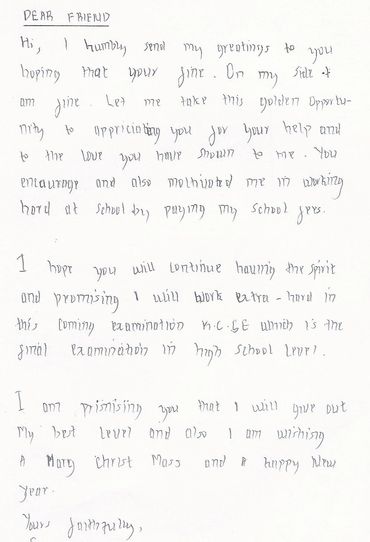 DEAR FRIEND
Hi, I humbly send my greetings to you
hoping that your fine. On my side I
am fine. Let me take this golden opportu-
nity to appriciating you for your help and
to the love you have shown to me. You
encourage and also mothivated me in working
hard at school by paying my school fees.
I hope you will continue having the spirit
and promising I will work extra-hard in
this coming examination K.C.S.E which is the
final examination in high school level.
I am prismising you that I will give out
My best level and also I am wishing
A Mary Christ Mass and A happy New
Year.
Yours faithfully,